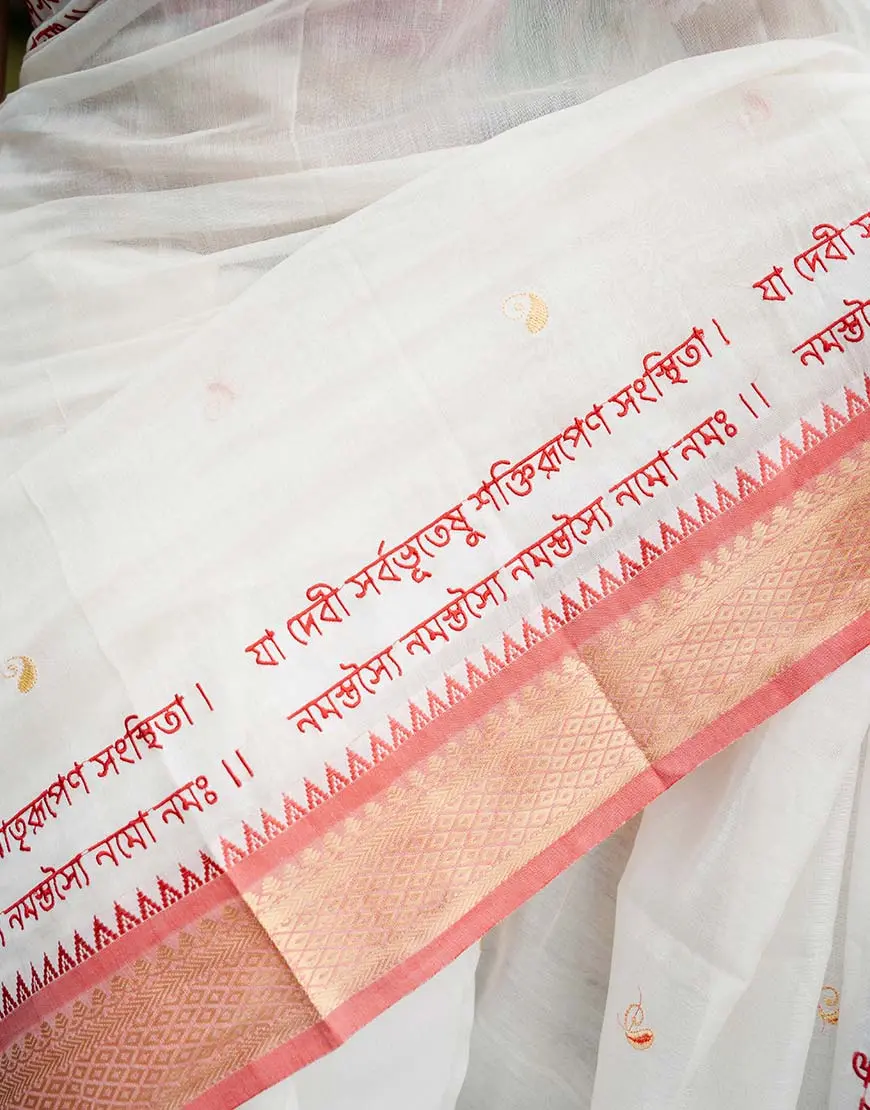 যা দেবী
নমস্তস্যৈ
যা দেবী সর্বভূতেষু শক্তিরূপেণ সংস্থিতা।
নমস্তস্যৈ নমস্তস্যৈ নমো নমঃ।।
মাতৃরূপেণ সংস্থিতা।
নমস্তস্যৈ নমো নমঃ।।